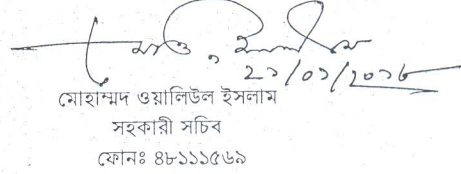 ২১/০১/২০১৮
মোহাম্মদ ওয়ালিউল ইসলাম
সহকারী সচিব
ফোনঃ ৪৮১১১৫৬৯